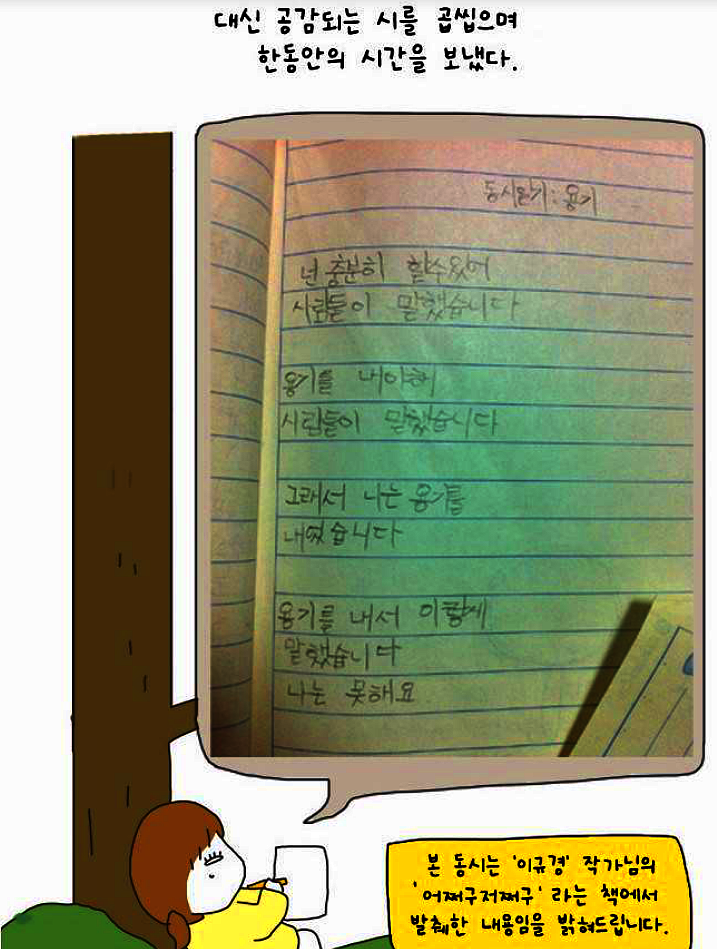 대신 공감되는 시를 곱씹으며
한동안의 시간을 보냈다.
동시일기 : 용기
넌 충분히 할수있어
사람들이 말했습니다
용기를 내야해
사람들이 말했습니다
그래서 나는 용기를
내었습니다
용기를 내서 이렇게
말했습니다
나는 못해요
본 동시는 '이규경' 작가님의
'어쩌구저쩌구' 라는 책에서
발췌한 내용임을 밝혀드립니다.